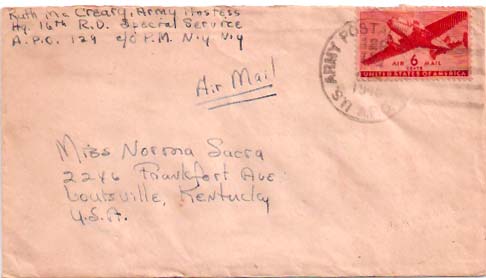 Ruth Mc Creary, Army Hostess
Hq. 16th R.D. Special Service
A.P.O. 129 c/o P.M. N.Y. N.Y
Air Mail
U.S. ARMY POSTAL
AIR 6 MAIL
CENTS
UNITED STATES OF AMERICA
Miss Norma Sacra
2246 Frankfort Ave
Louisville, Kentucky
U.S.A.